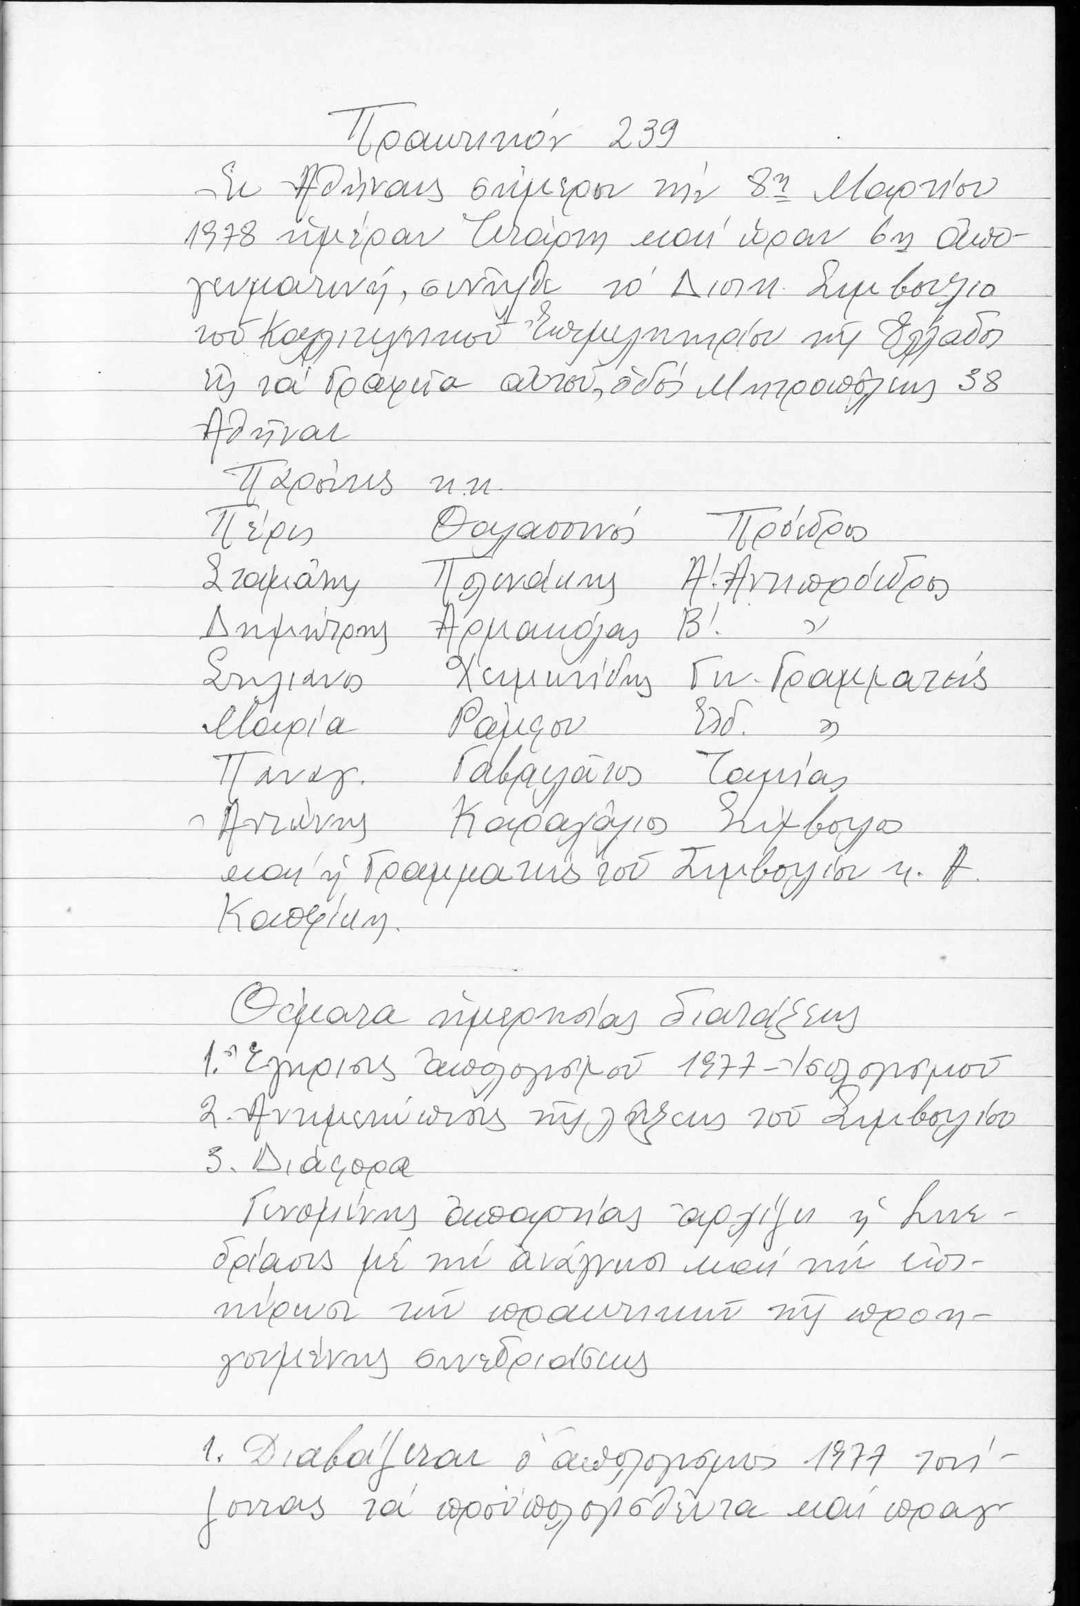 Πρακτικόν 239
Ἐν Ἀθήναις σήμερον τήν 8η Μαρτίου
1978 ἡμέραν Τετάρτη καί ὥραν 6η ἀπο-
γευματινή, συνῆλθε τό Διοικ. Συμβούλιο
τοῦ Καλλιτεχνικοῦ Ἐπιμελητηρίου τῆς Ἑλλάδος
εἰς τά Γραφεῖα αὐτοῦ, ὁδός Μητροπόλεως 38
Ἀθῆναι
Παρόντες κ.κ.
Πέρις Θαλασσινός Πρόεδρος
Σταμάτης Πολενάκης Α'. Ἀντιπρόεδρος
Δημήτρης Ἀρμακόλας Β'. "
Στυλιανός Γεν. Γραμματεύς
Μαρία Ράμφου Εἰδ. "
Παναγ. Γαβαλᾶτος Ταμίας
Ἀντώνης Καραχάλιος Σύμβουλος
καί ἡ Γραμματεύς τοῦ Συμβουλίου κ. Α.
Καπρίκη.
Θέματα ἡμερησίας διατάξεως
1. Ἔγκρισις ἀπολογισμοῦ 1977 - Ἰσολογισμοῦ
2. Ἀντιμετώπισις τῆς λήξεως τοῦ Συμβουλίου
3. Διάφορα
Γενομένης ἀπαρτίας ἀρχίζει ἡ Συνε-
δρίασις μέ τήν ἀνάγνωσι καί τήν ἐπι-
κύρωσι τῶν πρακτικῶν τῆς προη-
γουμένης συνεδριάσεως
1. Διαβάζεται ὁ ἀπολογισμός 1977 τονί-
ζοντας τά προϋπολογισθέντα καί πραγ-